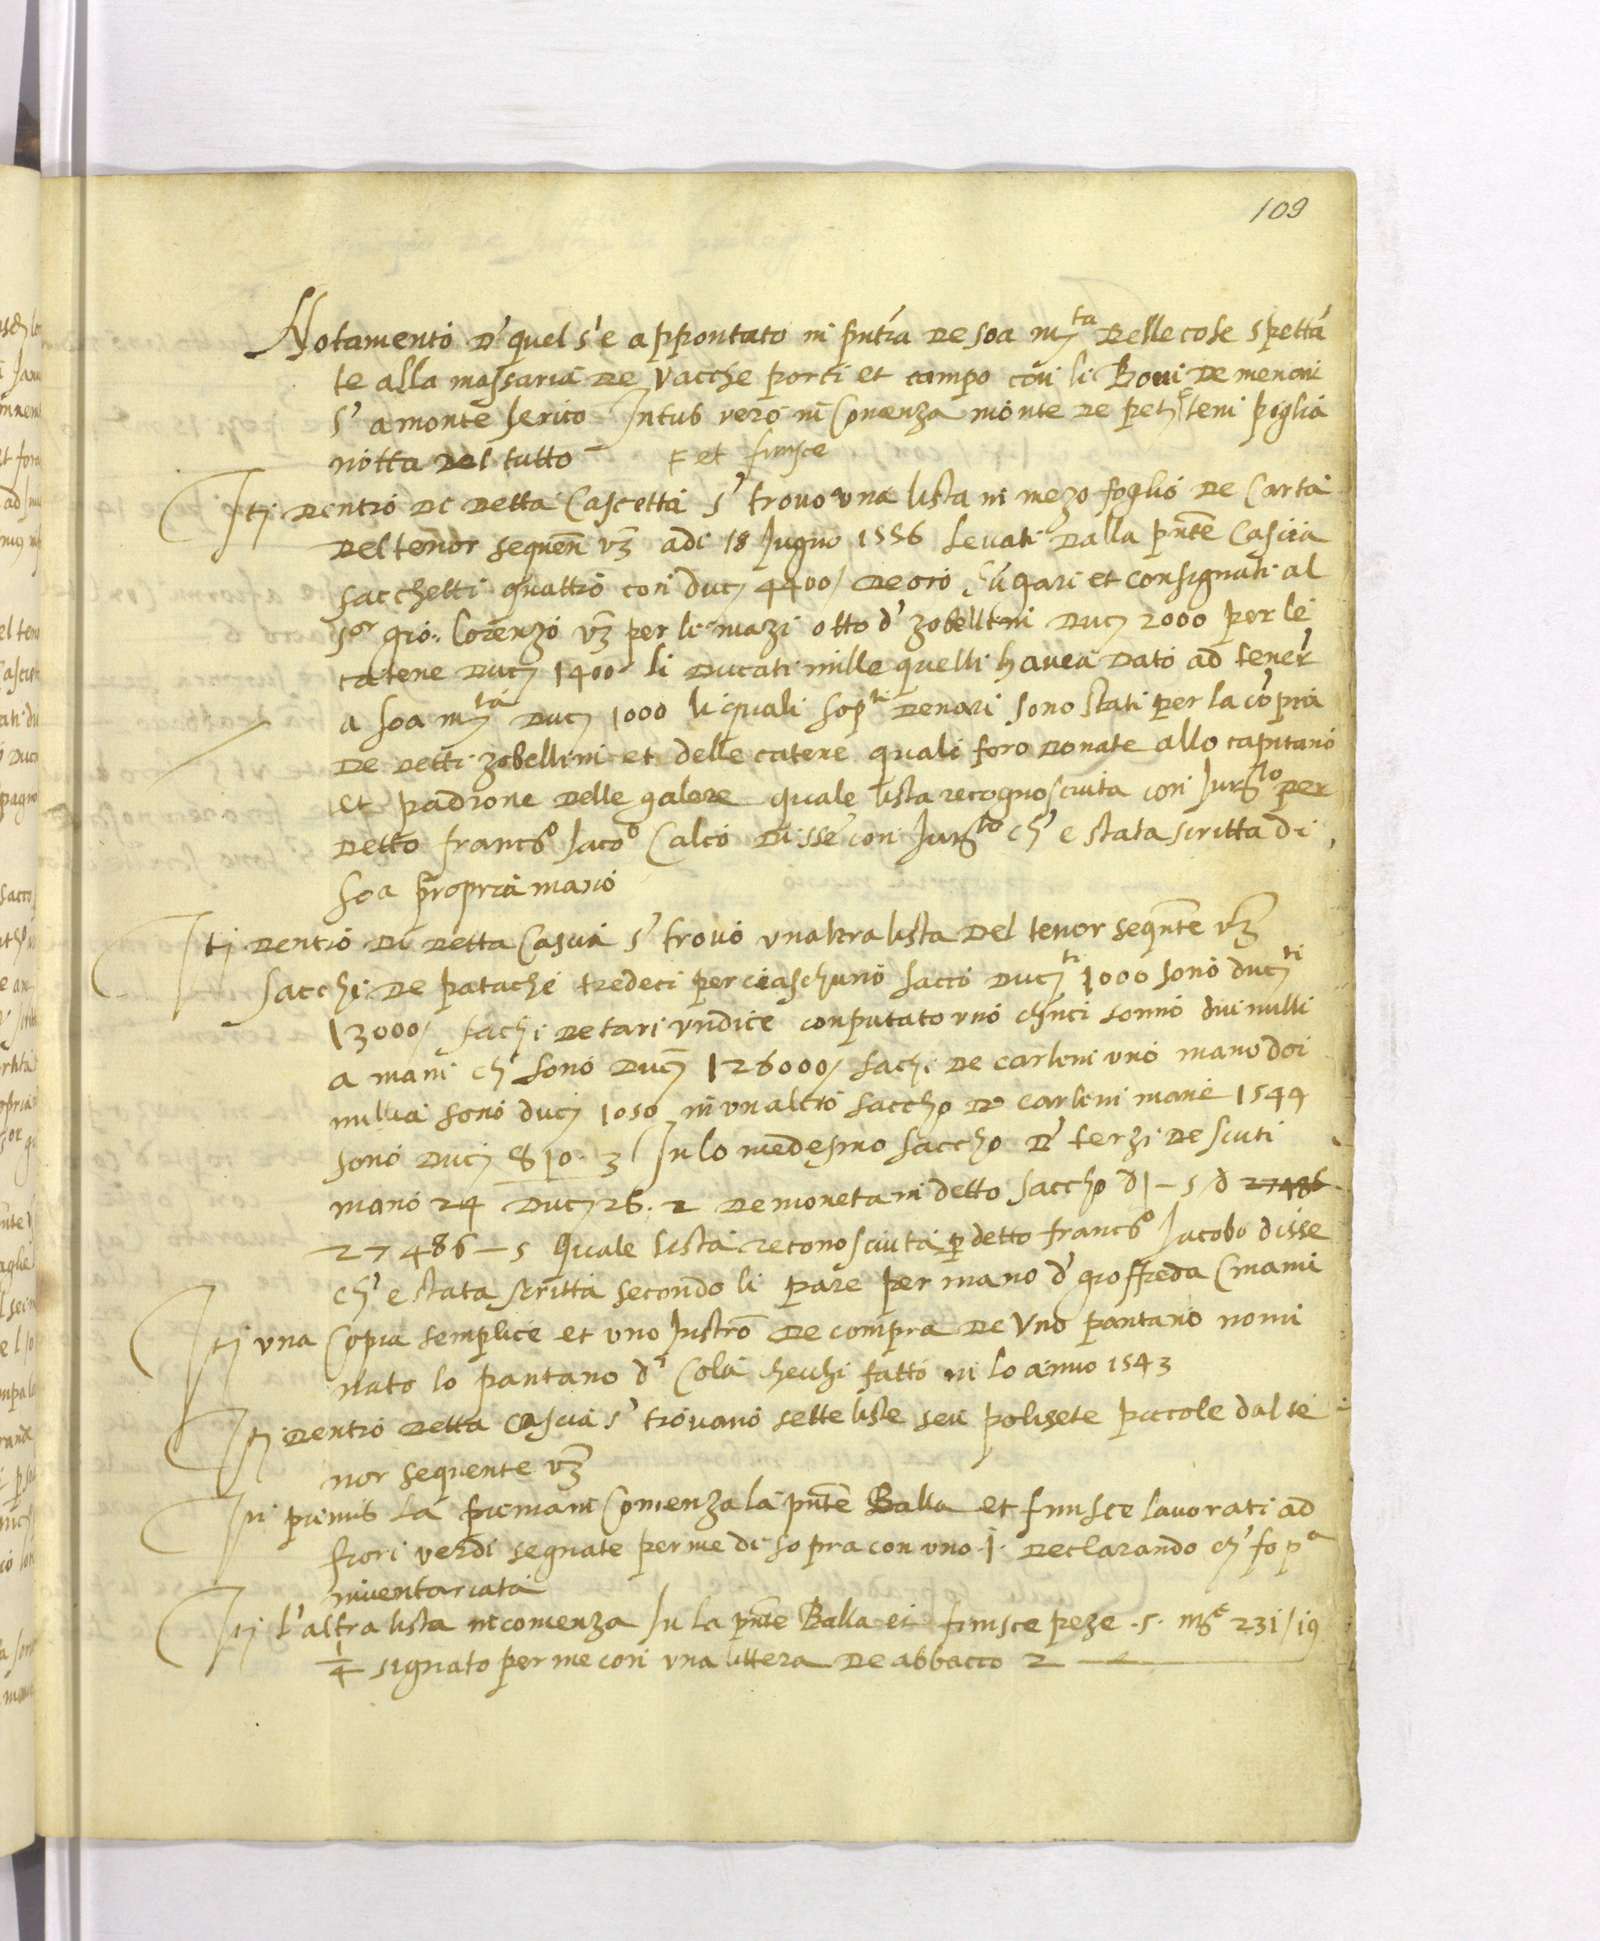 109
Notamento d' quel s'e appontato in pntia de soa mta delle cose spetta
te alla massaria de vacche porci et campo con li Bovi de menoni
s' a monte serico Intus vero in Comenza monte de peti teni piglia
notta del tutto et finisce
Itj dentro de detta Cascetta s' trovo una lista in mezo foglio de Carta
del tenor sequen vz adi 18 Jugno 1556 levati dalla pnte Cascia
sacchetti quattro con ducj 4400 de oro Ungari et consignati al
sor gio: lorenzo vz per li mazi otto d' zobellini ducj 2000 per le
catene ducj 1400 li ducati mille quelli havea dato ad tener
a soa mta ducj 1000 li quali sopti denari sono stati per la copra
de detti zobellini et delle catene quali foro donate allo capitano
et padrone delle galere quale lista recognosciuta con Jurto per
detto francco Jaco Calco disse con Jurto ch' e stata scritta di
soa propria mano
Itj dentro di detta Cascia s' trovo unaltra lista del tenor seqnte vz
sacchi de patache tredeci per ciaschuno sacco ducti 1000 sono ducti
13000 sachi de tari undice conputato uno chinci sonno dui milli
a mani ch' sono ducj 126000 sachi de carleni uno mano doi
millia sono ducj 1050 in unaltro saccho de carleni mane 1544
sono ducj 810. 3 In lo medesmo saccho d' terzi de scuti
mano 24 ducj 26. 2 de moneta in detto saccho d1 – 5 / d 27486
27486 – 5 Quale lista reconosciuta p detto francco Jacobo disse
ch' e stata scritta secondo li pare per mano d' gioffreda Cmami
Itj una Copia semplice et uno Instro de compra de Uno pantano nomi
nato lo pantano d' Cola checchi fatto in lo anno 1543
Itj dentro detta Cascia s' trovano sette liste seu polisete piccole dal te
nor sequente vz
In primis la prima in Comenza la pnte Balla et finisce lavorati ad
fiori verdi segnate per me di sopra con uno .1. declarando ch' fo pa
inventariata
Itj l'altra lista incomenza In la pnte Balla et finisce peze .5. 231 / 19
1/4 signato per me con una littera de abbacco 2